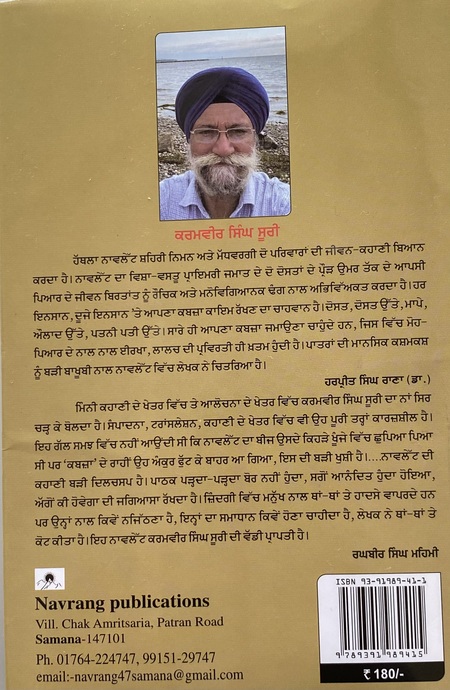 ਕਰਮਵੀਰ ਸਿੰਘ ਸੂਰੀ
ਹੱਥਲਾ ਨਾਵਲੇੱਟ ਸ਼ਹਿਰੀ ਨਿਮਨ ਅਤੇ ਮੱਧਵਰਗੀ ਦੋ ਪਰਿਵਾਰਾਂ ਦੀ ਜੀਵਨ-ਕਹਾਣੀ ਬਿਆਨ
ਕਰਦਾ ਹੈ। ਨਾਵਲੇੱਟ ਦਾ ਵਿਸ਼ਾ-ਵਸਤੂ ਪ੍ਰਾਇਮਰੀ ਜਮਾਤ ਦੇ ਦੋ ਦੋਸਤਾਂ ਦੇ ਪ੍ਰੌੜ ਉਮਰ ਤੱਕ ਦੇ ਆਪਸੀ
ਪਿਆਰ ਦੇ ਜੀਵਨ ਬਿਰਤਾਂਤ ਨੂੰ ਰੌਚਿਕ ਅਤੇ ਮਨੋਵਿਗਿਆਨਕ ਢੰਗ ਨਾਲ ਅਭਿਵਿੱਅਕਤ ਕਰਦਾ ਹੈ। ਹਰ
ਇਨਸਾਨ, ਦੂਜੇ ਇਨਸਾਨ 'ਤੇ ਆਪਣਾ ਕਬਜ਼ਾ ਕਾਇਮ ਰੱਖਣ ਦਾ ਚਾਹਵਾਨ ਹੈ। ਦੋਸਤ, ਦੋਸਤ ਉੱਤੇ, ਮਾਪੇ,
ਔਲਾਦ ਉੱਤੇ, ਪਤਨੀ ਪਤੀ ਉੱਤੇ। ਸਾਰੇ ਹੀ ਆਪਣਾ ਕਬਜ਼ਾ ਜਮਾਉਣਾ ਚਾਹੁੰਦੇ ਹਨ, ਜਿਸ ਵਿੱਚ ਮੋਹ-
ਪਿਆਰ ਦੇ ਨਾਲ ਨਾਲ ਈਰਖਾ, ਲਾਲਚ ਦੀ ਪ੍ਰਵਿਰਤੀ ਹੀ ਖ਼ਤਮ ਹੁੰਦੀ ਹੈ। ਪਾਤਰਾਂ ਦੀ ਮਾਨਸਿਕ ਕਸ਼ਮਕਸ਼
ਨੂੰ ਬੜੀ ਬਾਖੂਬੀ ਨਾਲ ਨਾਵਲੇੱਟ ਵਿੱਚ ਲੇਖਕ ਨੇ ਚਿਤਰਿਆ ਹੈ।
ਹਰਪ੍ਰੀਤ ਸਿੰਘ ਰਾਣਾ (ਡਾ.)
ਮਿਨੀ ਕਹਾਣੀ ਦੇ ਖੇਤਰ ਵਿੱਚ ਤੇ ਆਲੋਚਨਾ ਦੇ ਖੇਤਰ ਵਿੱਚ ਕਰਮਵੀਰ ਸਿੰਘ ਸੂਰੀ ਦਾ ਨਾਂ ਸਿਰ
ਚੜ੍ਹ ਕੇ ਬੋਲਦਾ ਹੈ। ਸੰਪਾਦਨਾ, ਟਰਾਂਸਲੇਸ਼ਨ, ਕਹਾਣੀ ਦੇ ਖੇਤਰ ਵਿੱਚ ਵੀ ਉਹ ਪੂਰੀ ਤਰ੍ਹਾਂ ਕਾਰਜਸ਼ੀਲ ਹੈ।
ਇਹ ਗੱਲ ਸਮਝ ਵਿੱਚ ਨਹੀਂ ਆਉਂਦੀ ਸੀ ਕਿ ਨਾਵਲੇੱਟ ਦਾ ਬੀਜ ਉਸਦੇ ਕਿਹੜੇ ਖੂੰਜੇ ਵਿੱਚ ਛੁਪਿਆ ਪਿਆ
ਸੀ ਪਰ 'ਕਬਜ਼ਾ' ਦੇ ਰਾਹੀਂ ਉਹ ਅੰਕੁਰ ਫੁੱਟ ਕੇ ਬਾਹਰ ਆ ਗਿਆ, ਇਸ ਦੀ ਬੜੀ ਖੁਸ਼ੀ ਹੈ।....ਨਾਵਲੇੱਟ ਦੀ
ਕਹਾਣੀ ਬੜੀ ਦਿਲਚਸਪ ਹੈ। ਪਾਠਕ ਪੜ੍ਹਦਾ-ਪੜ੍ਹਦਾ ਬੋਰ ਨਹੀਂ ਹੁੰਦਾ, ਸਗੋਂ ਆਨੰਦਿਤ ਹੁੰਦਾ ਹੋਇਆ,
ਅੱਗੋਂ ਕੀ ਹੋਵੇਗਾ ਦੀ ਜਗਿਆਸਾ ਰੱਖਦਾ ਹੈ। ਜ਼ਿੰਦਗੀ ਵਿੱਚ ਮਨੁੱਖ ਨਾਲ ਥਾਂ-ਥਾਂ ਤੇ ਹਾਦਸੇ ਵਾਪਰਦੇ ਹਨ
ਪਰ ਉਨ੍ਹਾਂ ਨਾਲ ਕਿਵੇਂ ਨਜਿੱਠਣਾ ਹੈ, ਇਨ੍ਹਾਂ ਦਾ ਸਮਾਧਾਨ ਕਿਵੇਂ ਹੋਣਾ ਚਾਹੀਦਾ ਹੈ, ਲੇਖਕ ਨੇ ਥਾਂ-ਥਾਂ ਤੇ
ਕੋਟ ਕੀਤਾ ਹੈ। ਇਹ ਨਾਵਲੇੱਟ ਕਰਮਵੀਰ ਸਿੰਘ ਸੂਰੀ ਦੀ ਵੱਡੀ ਪ੍ਰਾਪਤੀ ਹੈ।
ਰਘਬੀਰ ਸਿੰਘ ਮਹਿਮੀ
Navrang publications
Vill. Chak Amritsaria, Patran Road
Samana-147101
Ph. 01764-224747, 99151-29747
email:-navrang47samana@gmail.com
ISBN 93-91989-41-1
9 789391 989415
₹ 180/-